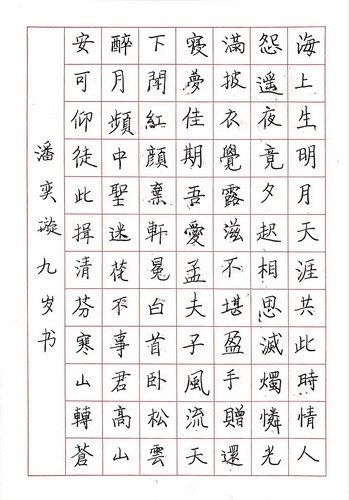 海上生明月天涯共此時情人
怨遥夜竟夕起相思滅燭憐光
滿披衣覺露滋不堪盈手贈還
寢夢佳期吾愛孟夫子風流天
下聞紅顔棄軒冕白首卧松雲
醉月頻中聖迷花不事君高山
安可仰徒此揖清芬寒山轉蒼
潘奕漩九岁书